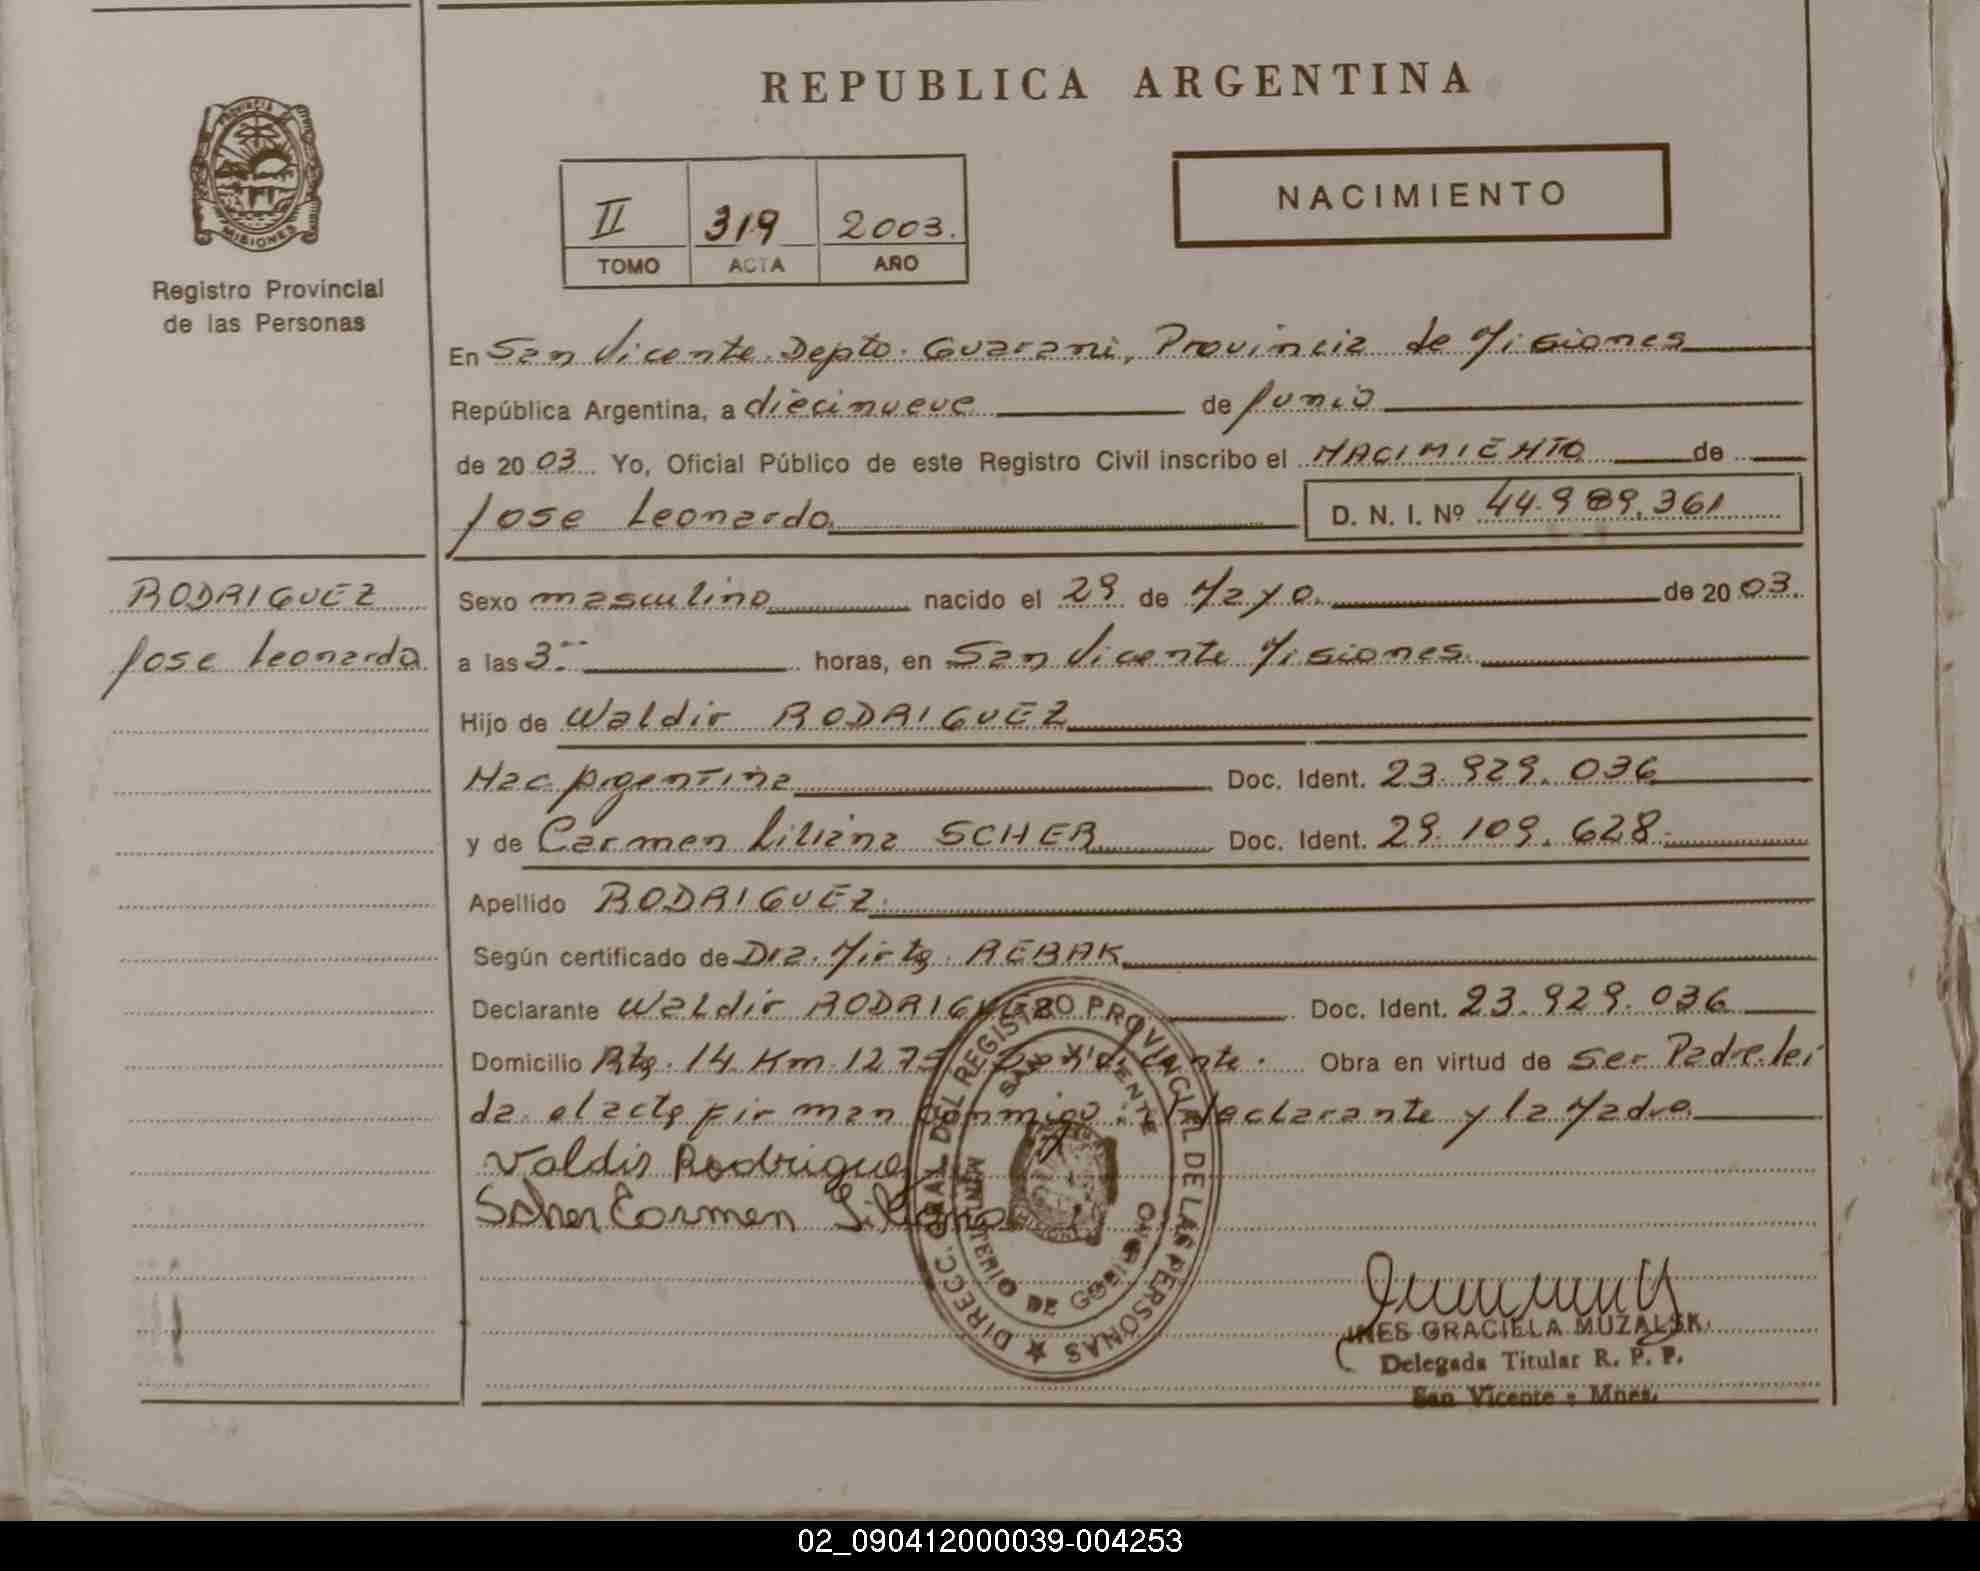 REPUBLICA ARGENTINA
PROVINCIA
MISIONES
Registro Provincial
de las Personas
II 319 2003.
TOMO ACTA AÑO
NACIMIENTO
En San Vicente Depto. Guarani, Provincia de Misiones
República Argentina, a diecinueve de Junio
de 2003 Yo, Oficial Público de este Registro Civil inscribo el NACIMIENTO de
Jose Leonardo D. N. I. Nº 44.989.361
RODRIGUEZ
Jose Leonardo
Sexo masculino nacido el 29 de Mayo de 2003.
a las 3 horas, en San Vicente Misiones.
Hijo de Waldir RODRIGUEZ
Nac. Argentina Doc. Ident. 23.929.036
y de Carmen Liliana SCHER Doc. Ident. 29.109.628.
Apellido RODRIGUEZ.
Según certificado de Dra. Mirta REBAK
Declarante Waldir RODRIGUEZ Doc. Ident. 23.929.036
Domicilio Rta. 14 Km. 1275 Vicente. Obra en virtud de Ser Padre. lei
da el acta firman conmigo: declarante y la Madre
Valdir Rodrigue
Scher Carmen Liliana
DIRECC. GRAL. DEL REGISTRO PROVINCIAL DE LAS PERSONAS
SAN VICENTE
MINISTERIO DE GOBIERNO
INES GRACIELA MUZALSK
Delegada Titular R. P. P.
San Vicente - Mnes.
02_090412000039-004253